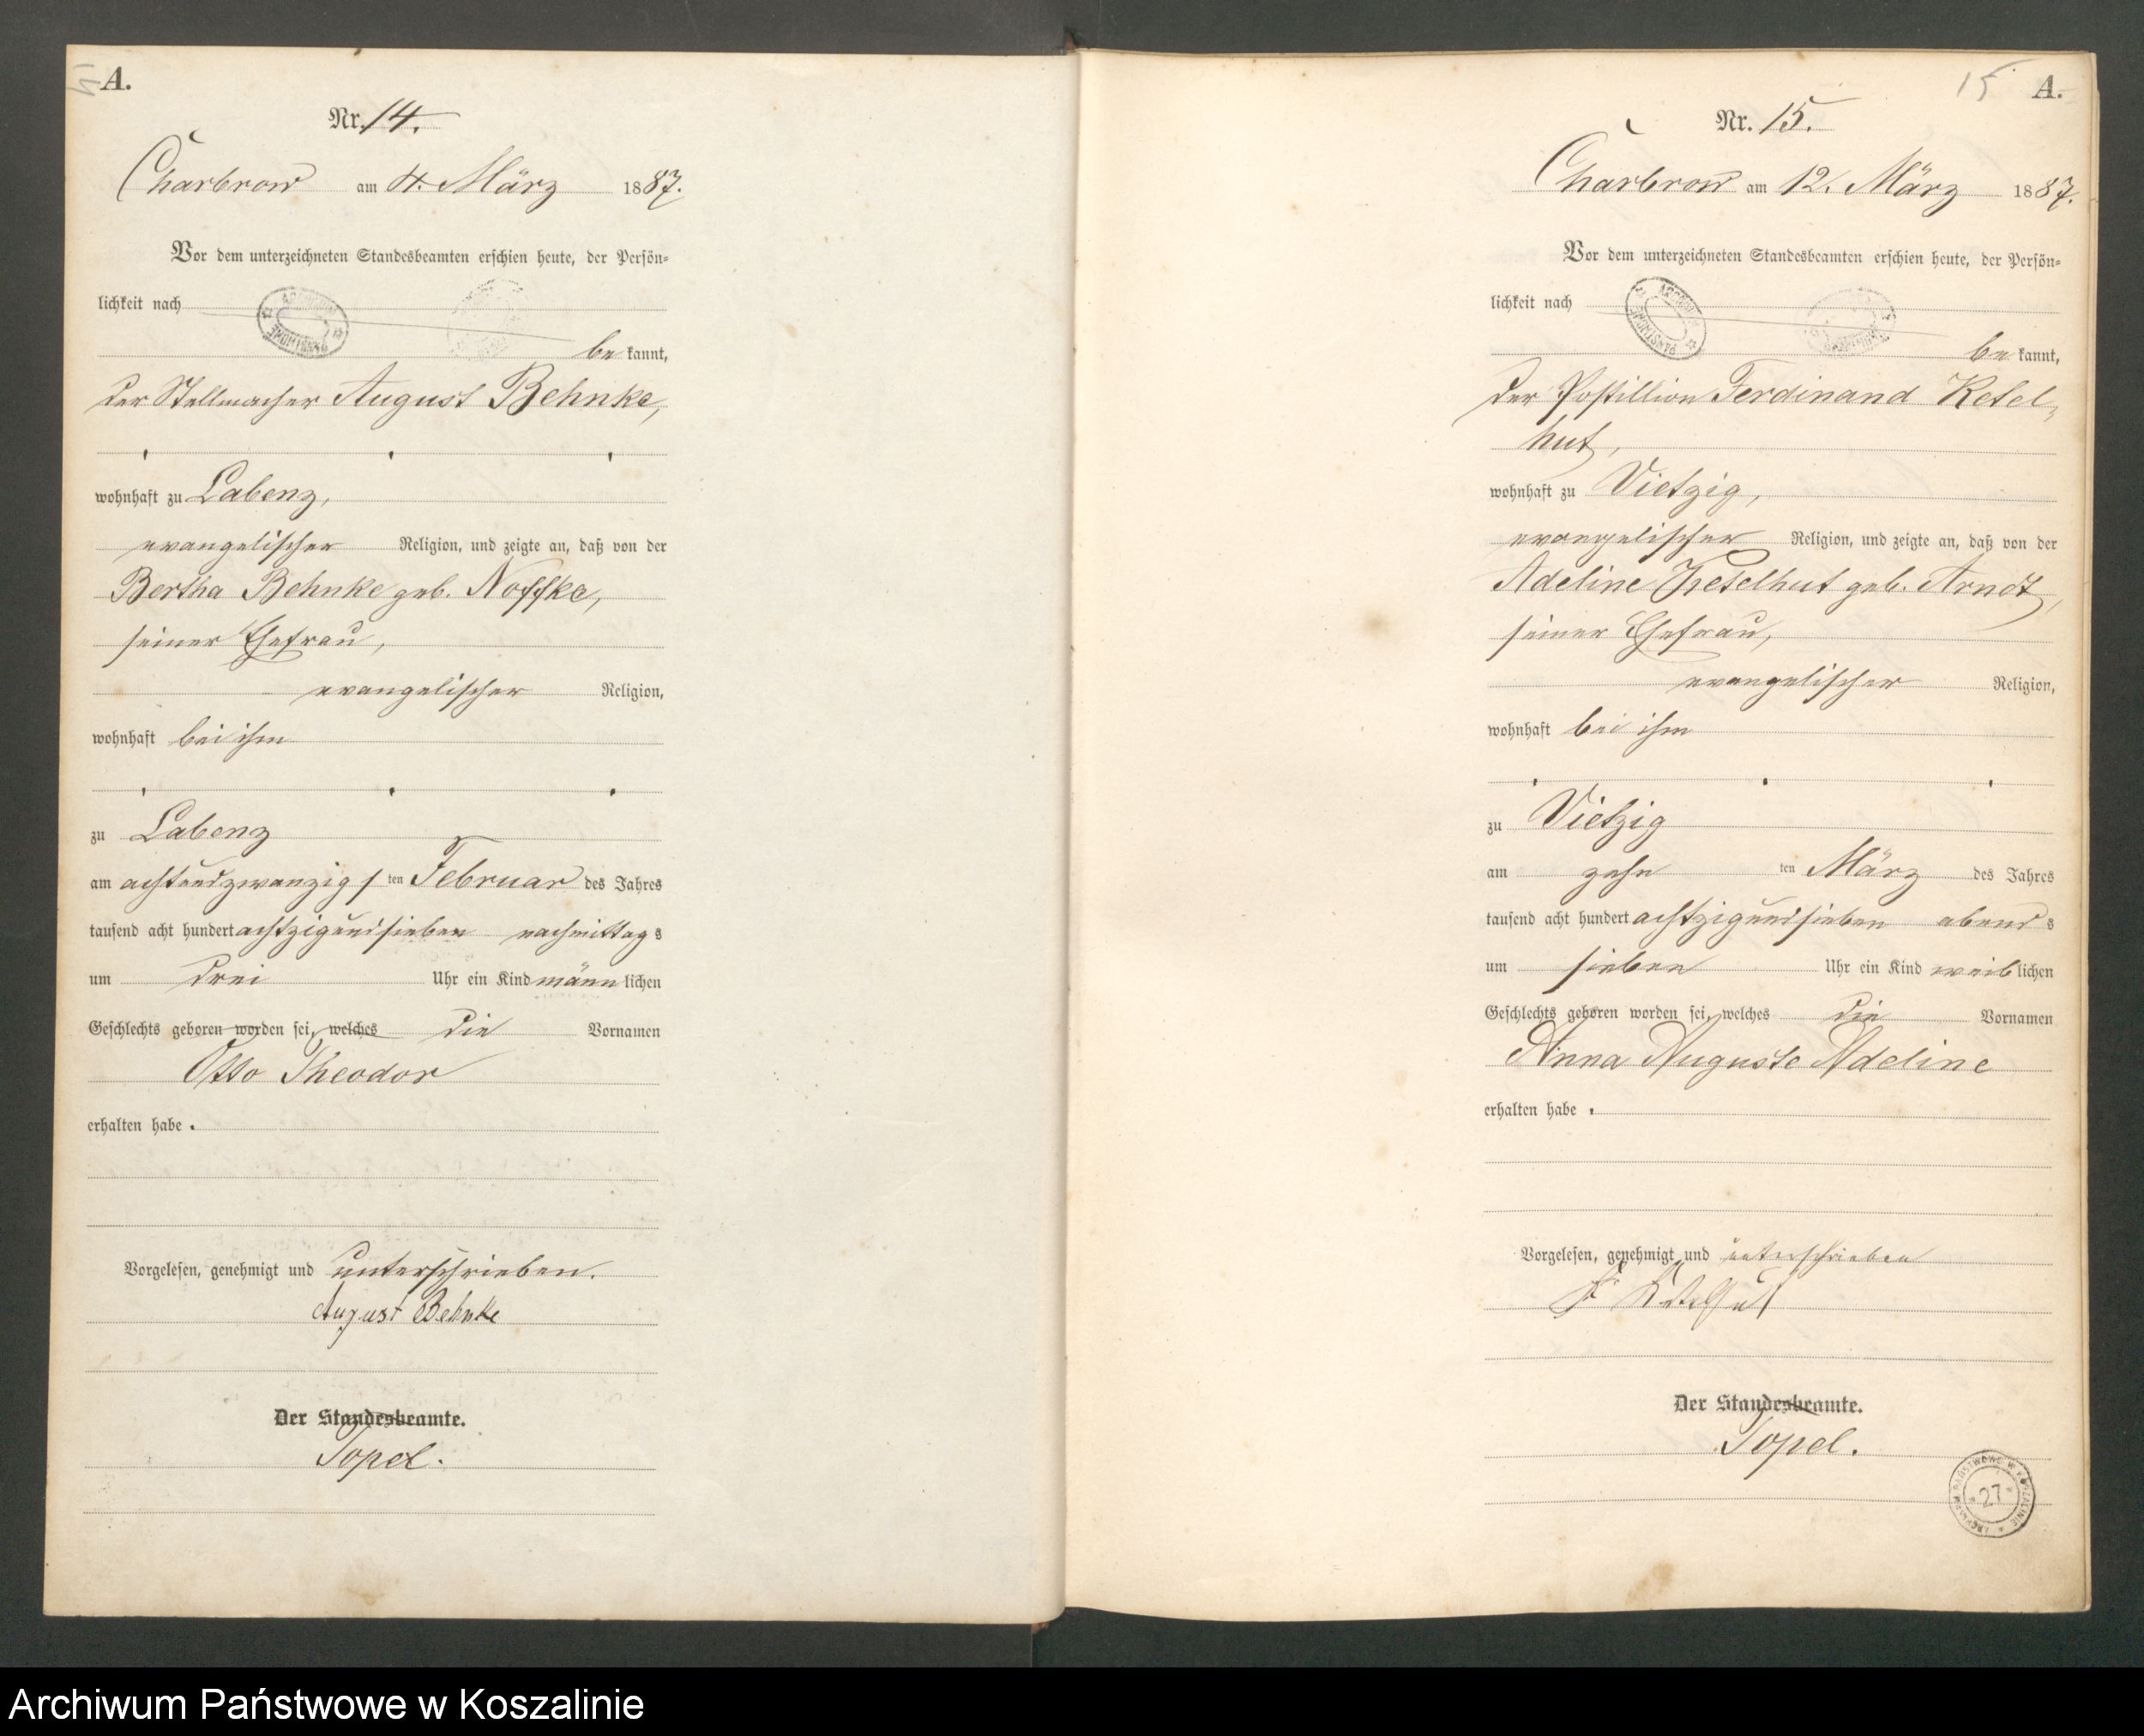 A.
Nr. 14.
Charbrow am 4. März 1887.
Vor dem unterzeichneten Standesbeamten erschien heute, der Persön-
lichkeit nach
bekannt,
der Stellmacher August Behnke,
wohnhaft zu Labenz,
evangelischer Religion, und zeigte an, daß von der
Bertha Behnke geb. Noffke,
seiner Ehefrau,
evangelischer Religion,
wohnhaft bei ihm
zu Labenz
am achtundzwanzigsten Februar des Jahres
tausend acht hundert achtzigundsieben nachmittags
um drei Uhr ein Kind männlichen
Geschlechts geboren worden sei, welches die Vornamen
Otto Theodor
erhalten habe.
Vorgelesen, genehmigt und unterschrieben.
August Behnke
Der Standesbeamte.
Topel.
15 A.
Nr. 15.
Charbrow am 12. März 1887.
Vor dem unterzeichneten Standesbeamten erschien heute, der Persön-
lichkeit nach
bekannt,
der Postillion Ferdinand Ketel-
hut,
wohnhaft zu Vietzig,
evangelischer Religion, und zeigte an, daß von der
Adeline Ketelhut geb. Arndt,
seiner Ehefrau,
evangelischer Religion,
wohnhaft bei ihm
zu Vietzig
am zehnten März des Jahres
tausend acht hundert achtzigundsieben abends
um sieben Uhr ein Kind weiblichen
Geschlechts geboren worden sei, welches die Vornamen
Anna Auguste Adeline
erhalten habe.
Vorgelesen, genehmigt und unterschrieben
F Ketelhut
Der Standesbeamte.
Topel.
ARCHIWUM PAŃSTWOWE W KOSZALINIE
27
Archiwum Państwowe w Koszalinie